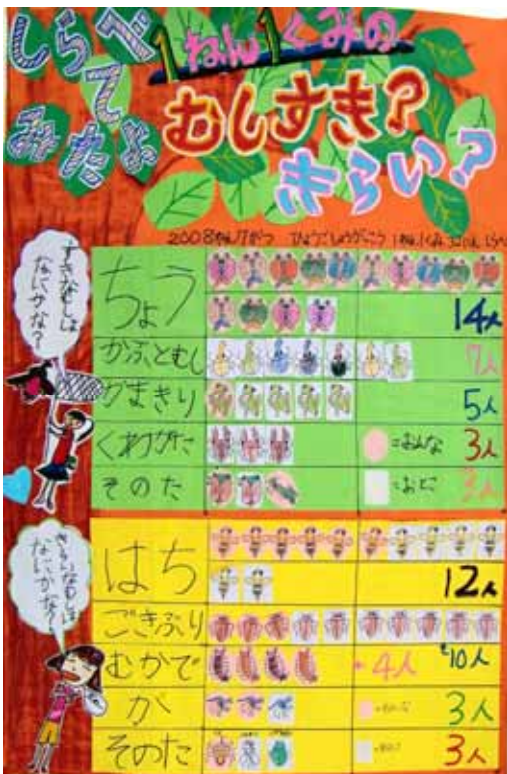 しらべてみたよ
1ねん1くみの
むしすき?
きらい?
2008ねん7がつ ひょうごしょうがっこう 1ねん1くみ 32にん しらべ
すきなむしは
なにかな?
ちょう 14人
かぶとむし 7人
かまきり 5人
くわがた =おんな 3人
そのた =おとこ 3人
きらいなむしは
なにかな?
はち 12人
ごきぶり 10人
むかで 4人
が 3人
そのた 3人